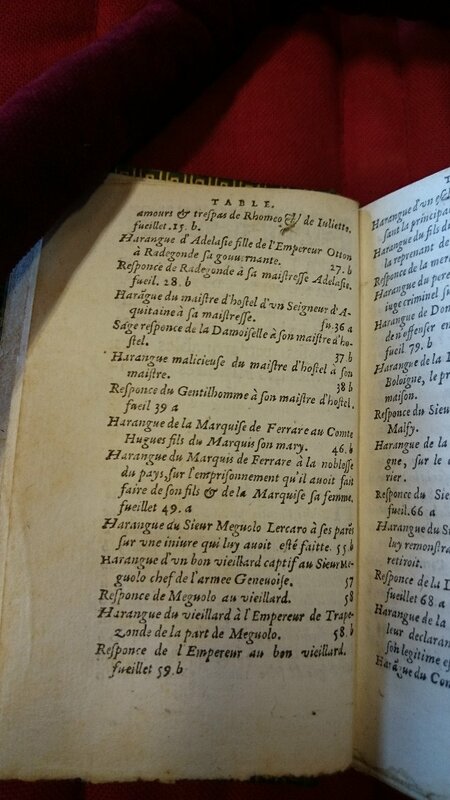 TABLE.
amours & trespas de Rhomeo & de Iuliette.
fueillet.15.b.
Harangue d'Adelasie fille de l'Empereur Otton
à Radegonde sa gouuernante. 27.b
Responce de Radegonde à sa maistresse Adelasie.
fueil. 28.b
Harãgue du maistre d'hostel d'vn Seigneur d'A-
quitaine à sa maistresse. fu.36 a
Sage responce de la Damoiselle à son maistre d'ho-
stel. 37 b
Harangue malicieuse du maistre d'hostel à son
maistre. 38 b
Responce du Gentilhomme à son maistre d'hostel.
fueil 39 a
Harangue de la Marquise de Ferrare au Comte
Hugues fils du Marquis son mary. 46.b
Harangue du Marquis de Ferrare à la noblesse
du pays, sur l'emprisonnement qu'il auoit fait
faire de son fils & de la Marquise sa femme.
fueillet 49.a
Harangue du Sieur Meguolo Lercaro à ses parẽs
sur vne iniure qui luy auoit esté faitte. 55.b
Harangue d'vn bon vieillard captif au Sieur Me-
guolo chef de l'armee Geneuoise. 57
Responce de Meguolo au vieillard. 58
Harangue du vieillard à l'Empereur de Trape-
zonde de la part de Meguolo. 58.b
Responce de l'Empereur au bon vieillard.
fueillet 59.b
Harangue d'vn
sant la principa
Harangue du fils du
la reprenant de
Responce de la mer
Harangue du pere
iuge criminel su
Harangue de Don
den offenser en
fueil 79.b
Harangue de la I
Boloigne, le pr
maison.
Responce du Sieu
Malfy.
Harangue de la
gne, sur le
rier.
Responce du Sieu
fueil.66 a
Harangue du Si
luy remonstra
retiroit.
Responce de la I
fueillet 68 a
Harangue de la
leur declaran
son legitime es
Harãgue du Con